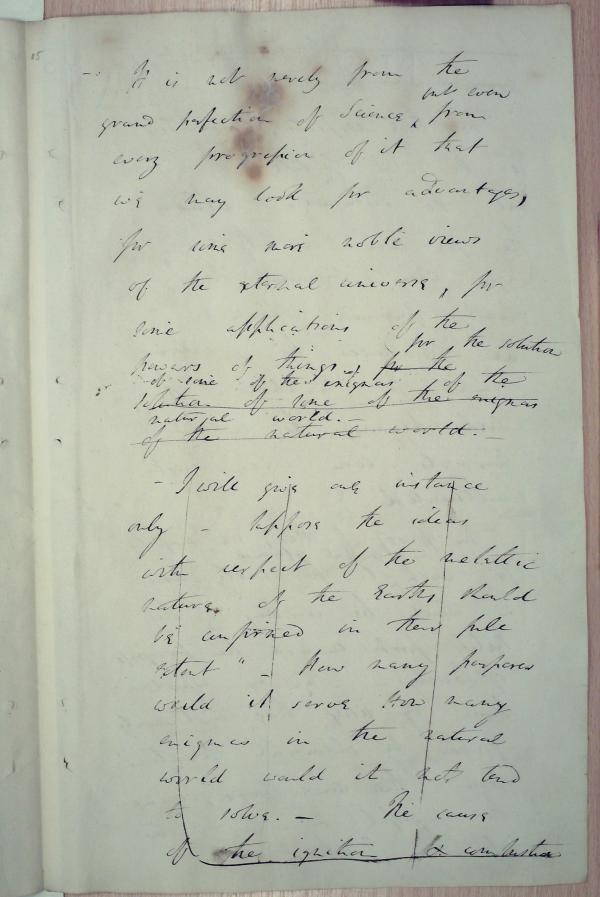 15
- It is not merely from the
but even
grand perfection of Science, from
every progression of it that
we may look for advantages,
for some more noble views
of the external universe, for
some applications of the
for the solution
powers of things, for the
of some of the enigmas of the
solution of some of the enigmas
natural world. -
of the natural world. -
- I will give one instance
only - Suppose the ideas
with respect of the metallic
nature of the Earths should
be confirmed in their full
extent" - How many purposes
would it serve How many
enigmas in the natural
world would it not tend
to solve. - The cause
of the ignition & combustion